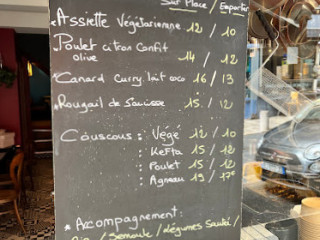 Sur Place / Emporter
Assiette Végétarienne 12 / 10
Poulet citron Confit
olive 14 / 12
Canard Curry. lait coco 16 / 13
Rougail de Saucisse 15 / 12
Couscous : Végé 12 / 10
: Kefta 15 / 12
: Poulet 15 / 12
: Agneau 19 / 17€
* Accompagnement :
Riz / Semoule / légumes Sautés /